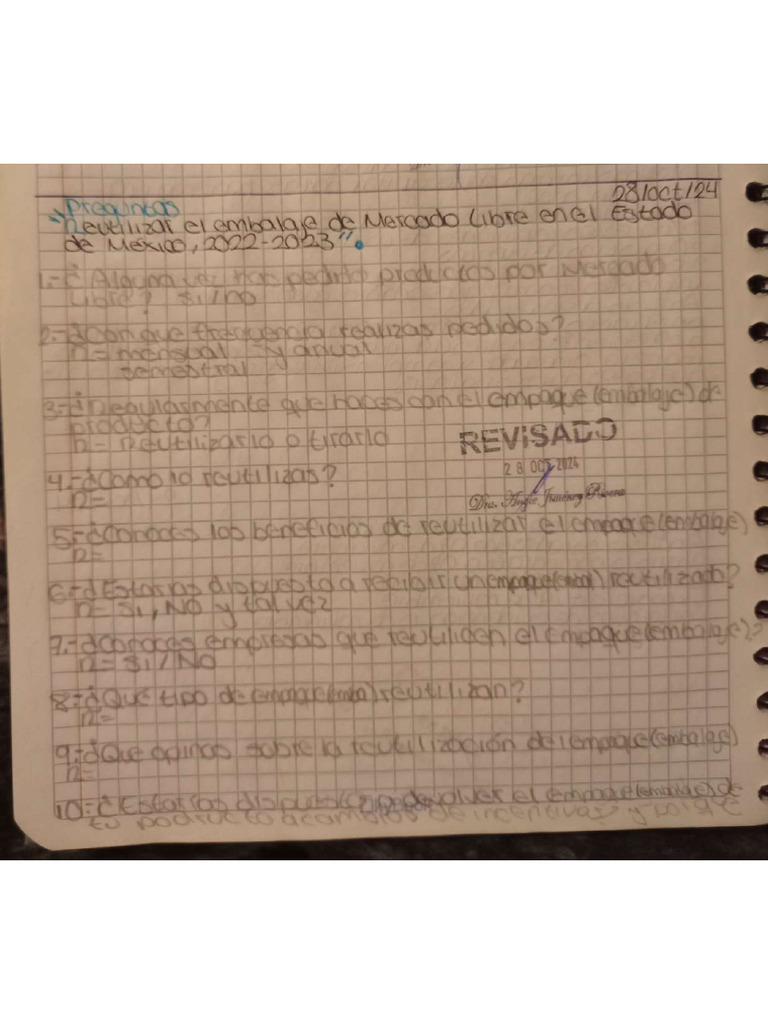 28/oct/24
Preguntas
"Reutilizar el embalaje de Mercado Libre en el Estado
de México, 2022-2023".
1.-¿Alguna vez has pedido productos por Mercado
Libre? si/no
2.-¿Con que frecuencia realizas pedidos?
R= mensual y anual
semestral
3.-¿Regularmente que haces con el empaque (embalaje) de
producto?
R- Reutilizarlo o tirarlo
REVISADO
28 OCT 2024
4.-¿Como lo reutilizas?
R=
5.-¿Conoces los beneficios de reutilizar el empaque (embalaje)
R=
6.-¿Estarias dispuesta a recibir un empaque reutilizado?
R= Si, No y tal vez
7.-¿Conoces empresas que reutilicen el empaque (embalaje)?
R= Si / No
8.-¿Que tipo de reutilizan?
R=
9.-¿Que opinas sobre la reutilización del empaque (embalaje)
R=
10.-¿Estarias el empaque de
tu producto a de incentivas y